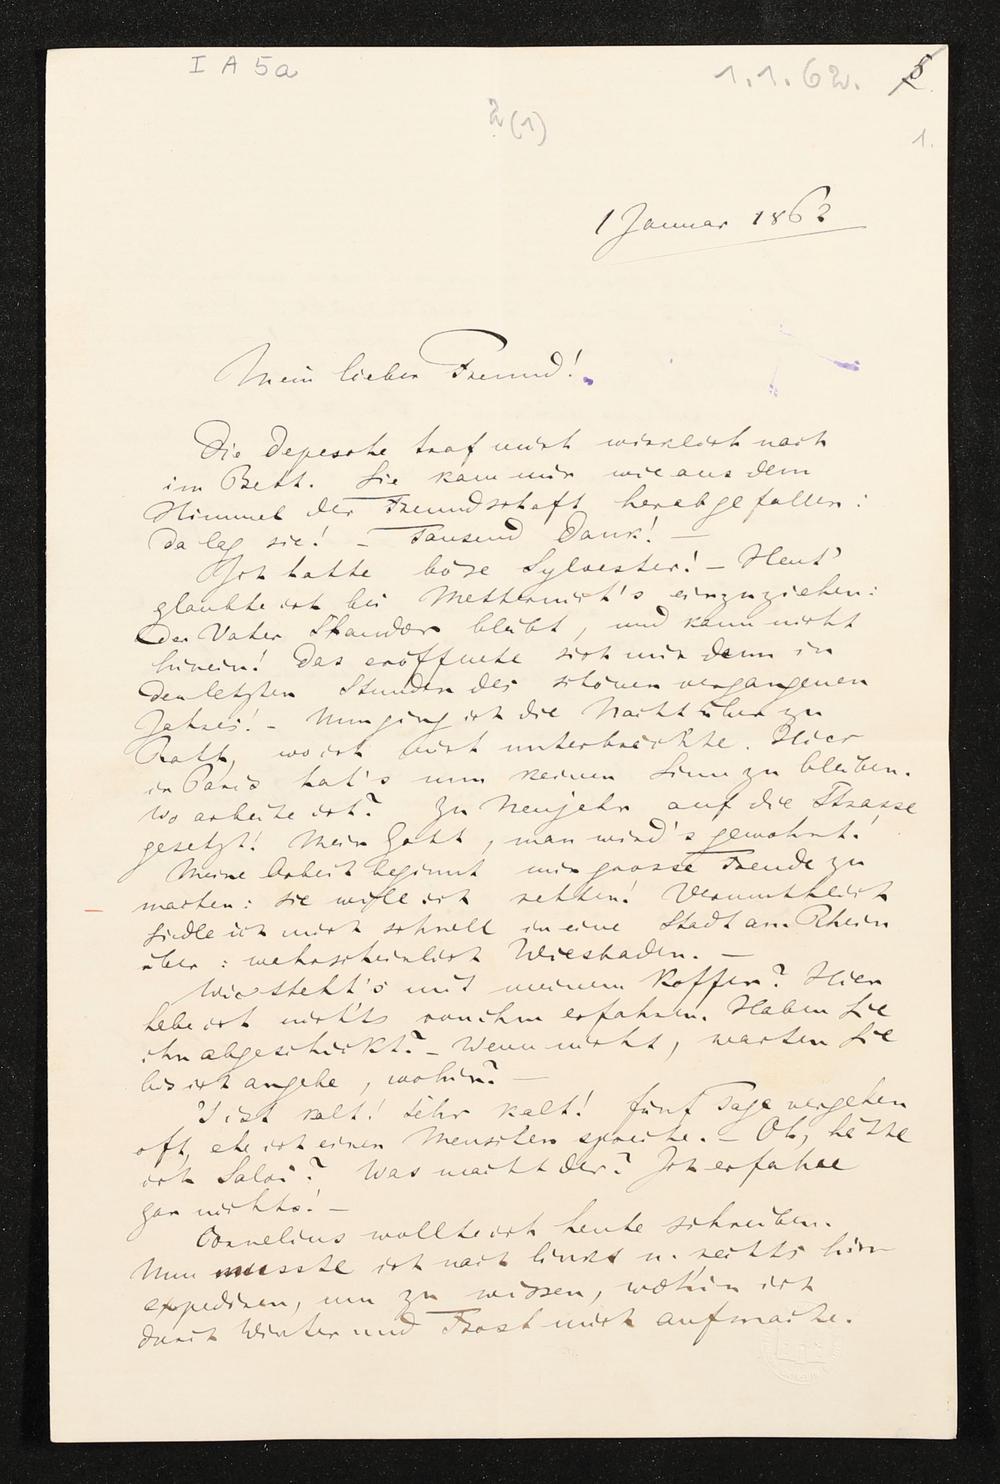 I A 5a
1.1.62.
2(1)
1.
1 Januar 1862
Mein lieber Freund!
Die Depesche traf mich wirklich noch
im Bett. Sie kam mir wie aus dem
Himmel der Freundschaft herabgefallen:
da lag sie! – Tausend Dank! –
Ich hatte böse Sylvester! – Heut'
glaubte ich bei Metternich's einzuziehen:
der Vater Shandor bleibt, und kann nicht
hinein! Das eröffnete sich mir denn in
den letzten Stunden des schönen vergangenen
Jahres! – Nun ging ich die Nacht über zu
Rath, wo ich mich unterbrächte. Hier
in Paris hat's nun keinen Sinn zu bleiben.
Wo arbeite ich? Zu Neujahr auf die Strasse
gesetzt! Mein Gott, man wird's gewohnt!
Meine Arbeit beginnt mir grosse Freude zu
machen: sie will ich retten! Vermuthlich
siedle ich mich schnell in eine Stadt am Rhein
über: wahrscheinlich Wiesbaden. –
Wie steht's mit meinem Koffer? Hier
habe ich nichts von ihm erfahren. Haben Sie
ihn abgeschickt? – Wenn nicht, warten Sie
bis ich angebe, wohin? –
's ist kalt! Sehr kalt! Fünf Tage vergehen
oft, ehe ich einen Menschen spreche. – Oh, hätte
ich Salzi? Was macht der? Ich erfahre
gar nichts! –
Cornelius wollte ich heute schreiben.
Nun musste ich nach links u. rechts hin
expediren, um zu wissen, wohin ich
durch Winter und Frost mich aufmache.